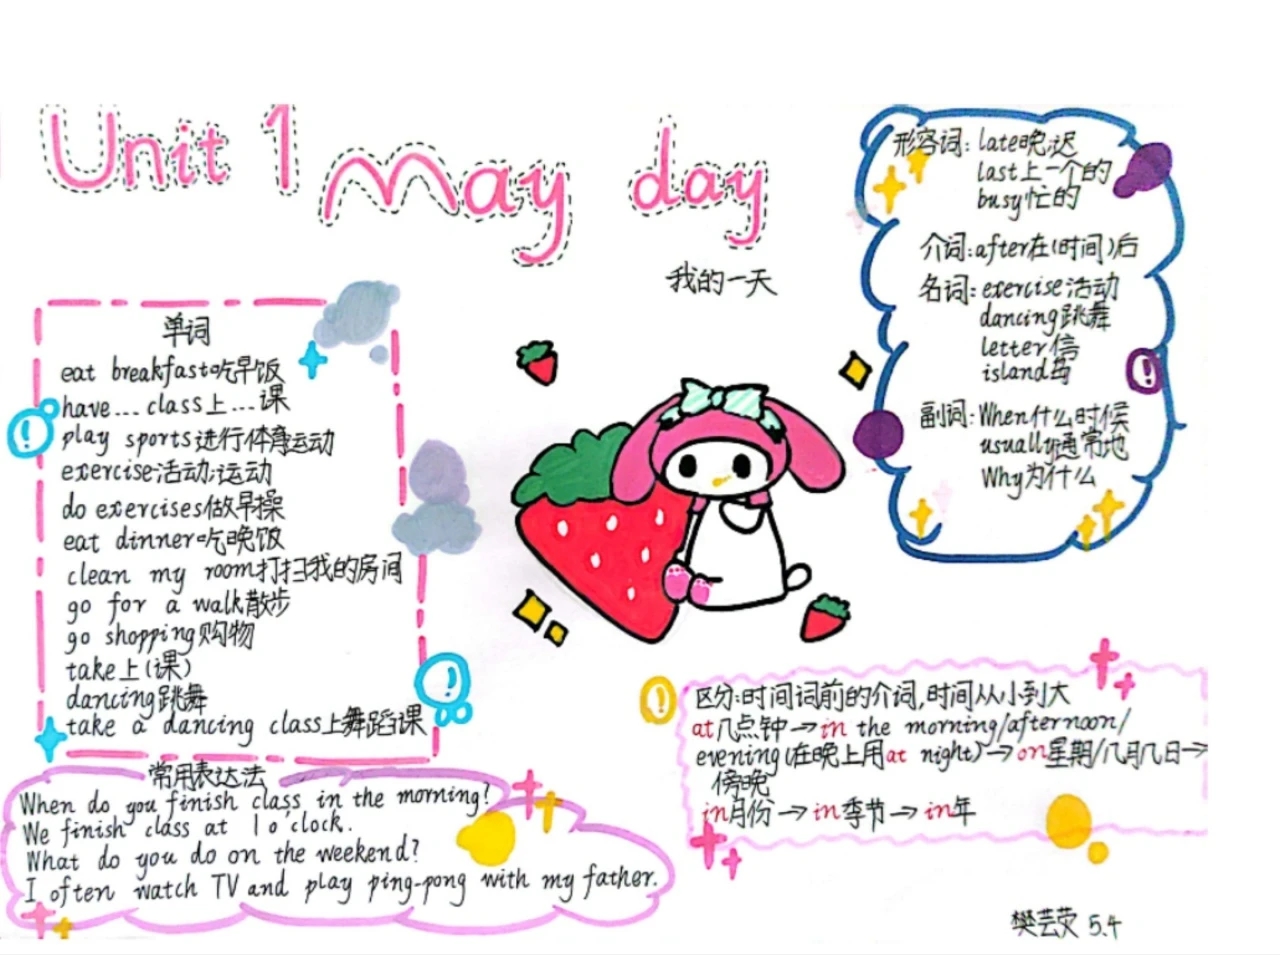 Unit 1 May day
我的一天
单词
eat breakfast吃早饭
have...class上...课
play sports进行体育运动
exercise活动;运动
do exercises做早操
eat dinner吃晚饭
clean my room打扫我的房间
go for a walk散步
go shopping购物
take上(课)
dancing跳舞
take a dancing class上舞蹈课
形容词: late晚;迟
last上一个的
busy忙的
介词:after在(时间)后
名词: exercise活动
dancing跳舞
letter信
island岛
副词: When什么时候
usually通常地
Why为什么
区分:时间词前的介词,时间从小到大
at几点钟→in the morning/afternoon/
evening(在晚上用at night)→on星期/几月几日→
傍晚
in月份→in季节→in年
常用表达法
When do you finish class in the morning?
We finish class at 1 o'clock.
What do you do on the weekend?
I often watch TV and play ping-pong with my father.
樊芸荧 5.4